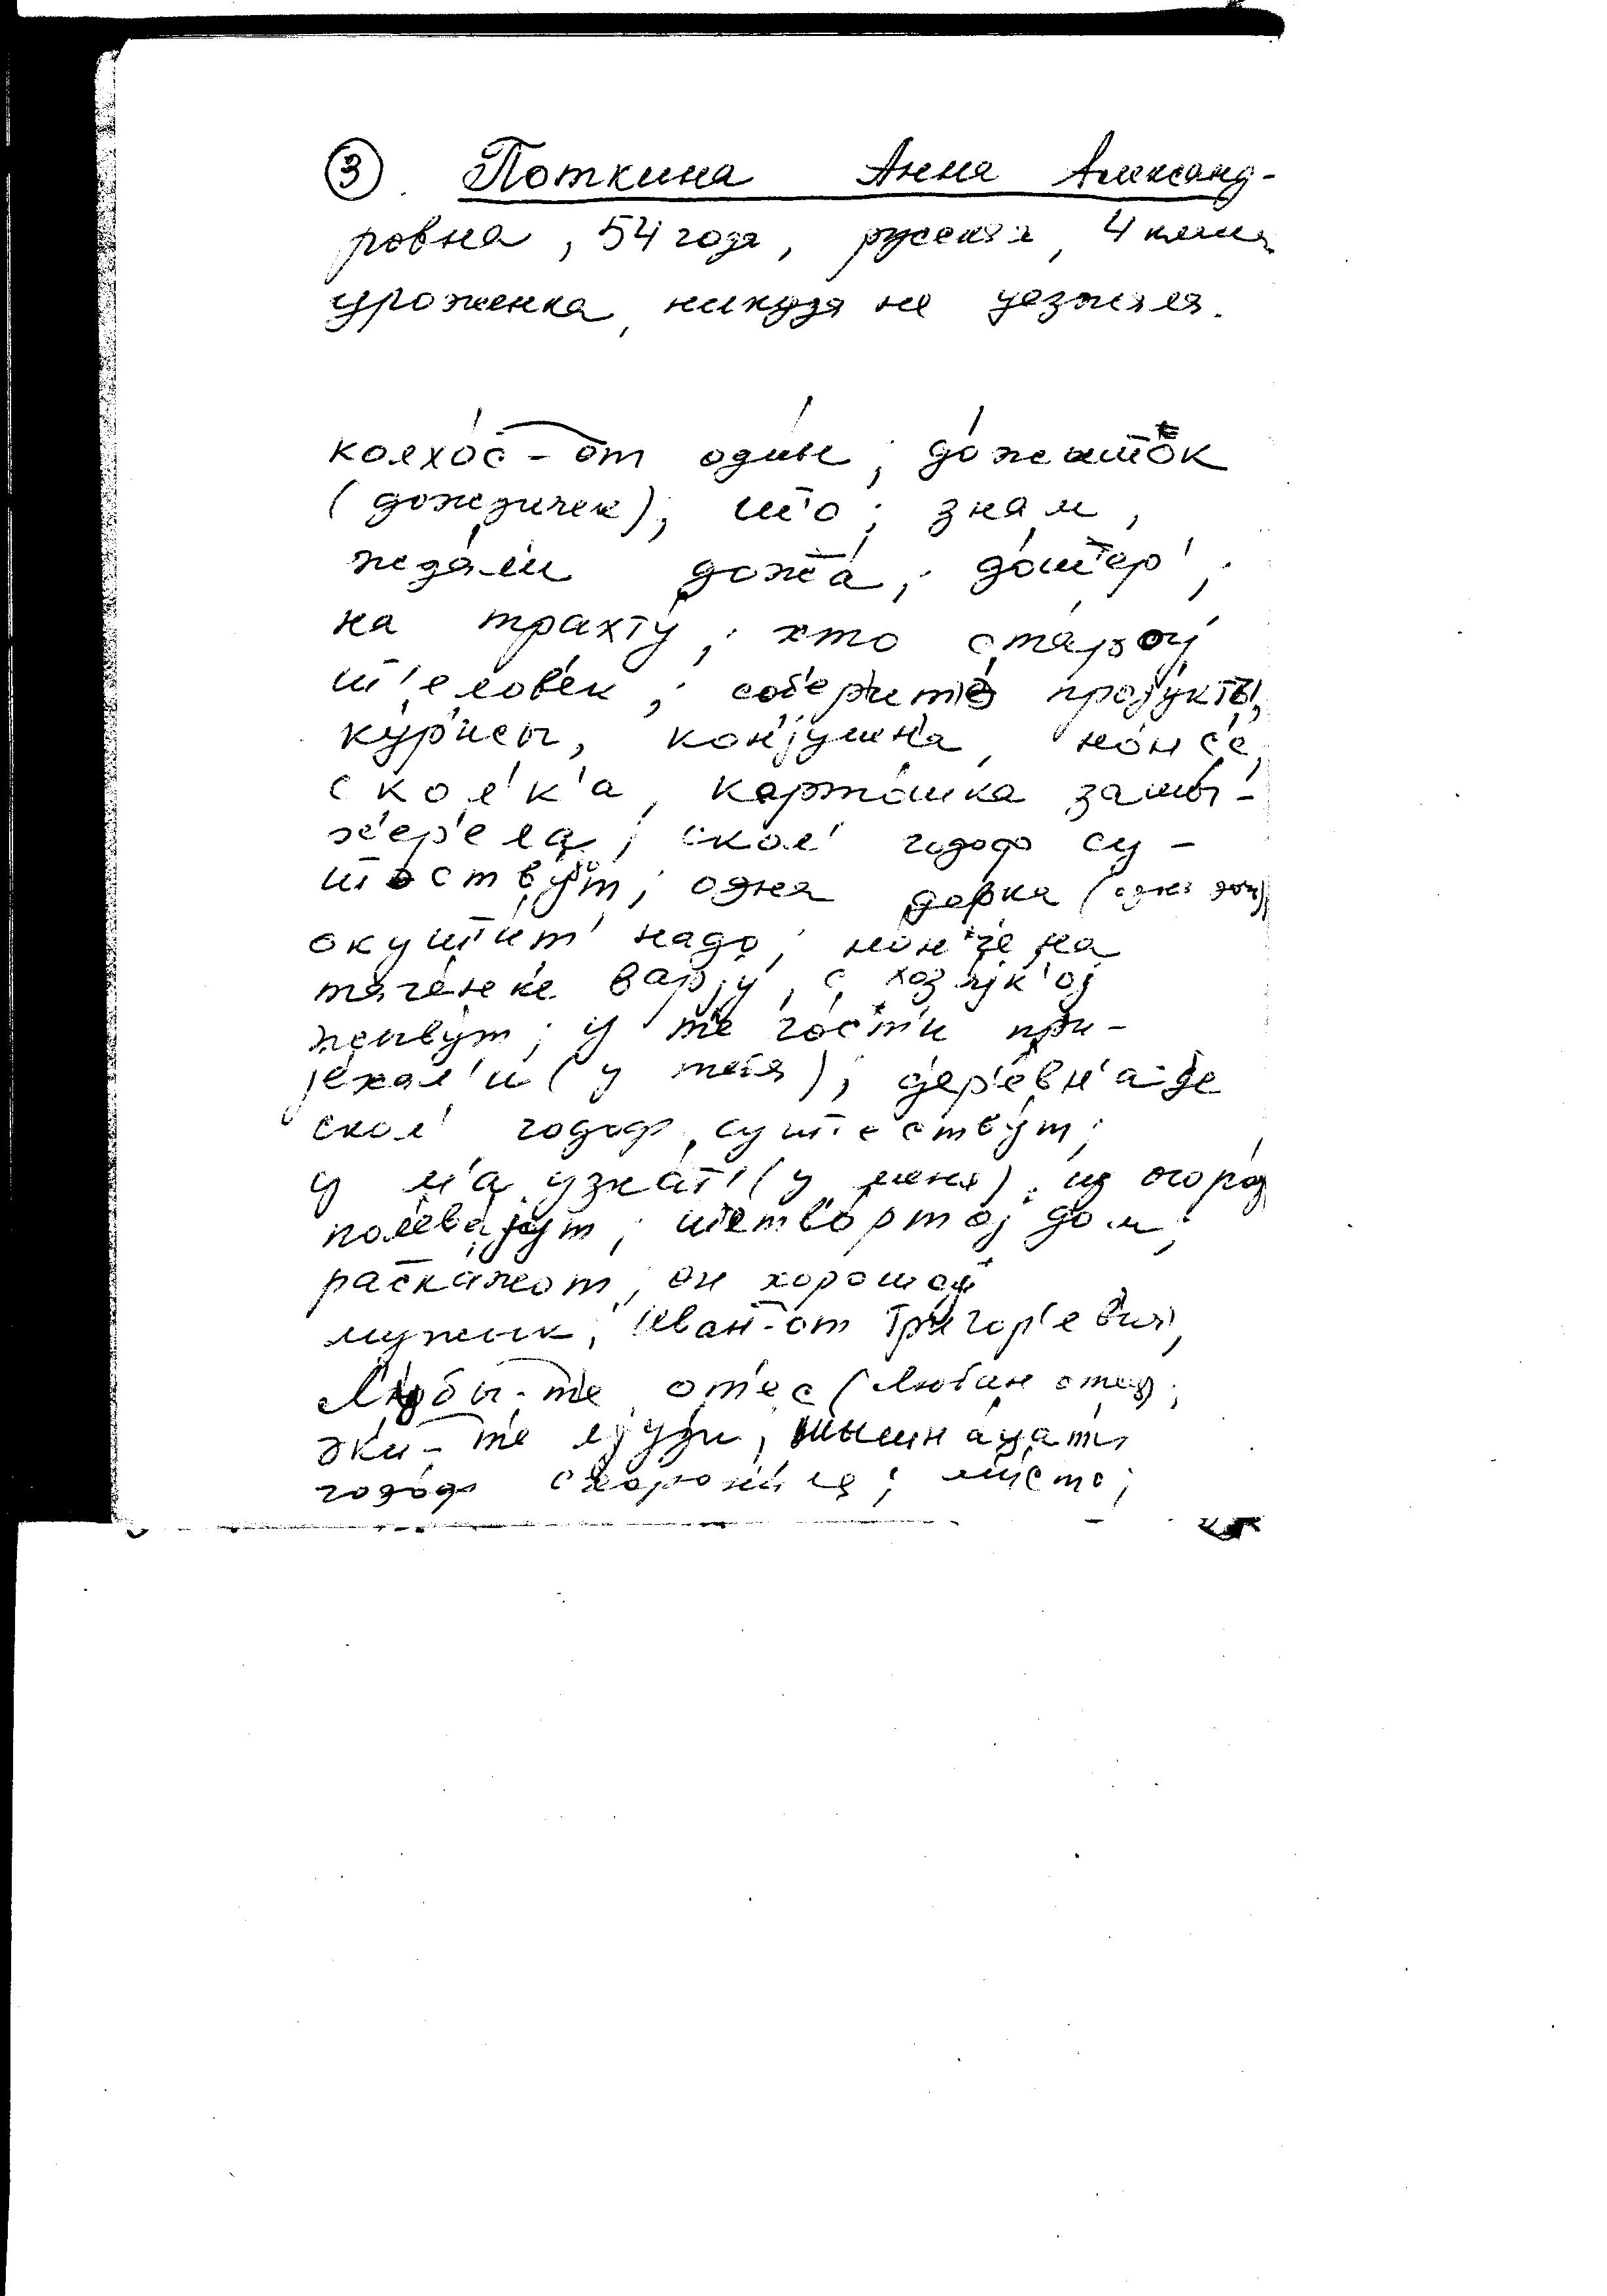 ③. Поткина Анна Александ-
ровна, 54 года, русская, 4 класса
уроженка, никуда не уезжала.
колхо́с-от оди́н; до́жыт'ок
(дождичек); шт'о; знам,
жда́л'и дожта́; до́шт'ер';
на трахту́; хто ста́рој
шт'елов'е́к; соб'ери́т'е проду́кты,
ку́р'исы, кон'у́шн'а, но́н'с'е,
ско́л'к'а, карто́шка
скол' годоф су-
шт'оству́т; одна
окуш'т'ит' надо; но́н'че на
варју́, с хоз'а́јк'ој
жыву́т; у т'е го́с'т'и при-
је́хал'и (у тебя); д'ер'е́вн'а-д'е
скол' годоф сушт'еству́т;
у м'а узна́т' (у меня); из огород
пол'ева́јут; шт'етв'о́ртој дом;
раска́жот, он хорошој
мужык; Иван-от Григор'евич,
Л'у́бы-т'е от'ес (Любин отец);
эк'и-т'е л'у́д'и,
годо́ф схорон'и́ла; м'и́сто;